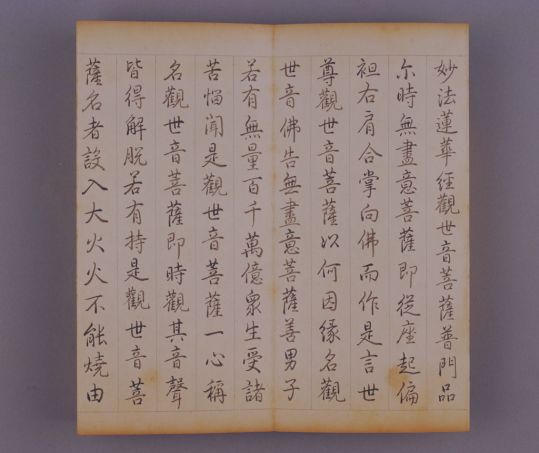 妙法蓮華經觀世音菩薩普門品
尒時無盡意菩薩即從座起偏
袒右肩合掌向佛而作是言世
尊觀世音菩薩以何因緣名觀
世音佛告無盡意菩薩善男子
若有無量百千萬億眾生受諸
苦惱聞是觀世音菩薩一心稱
名觀世音菩薩即時觀其音聲
皆得解脫若有持是觀世音菩
薩名者設入大火火不能燒由